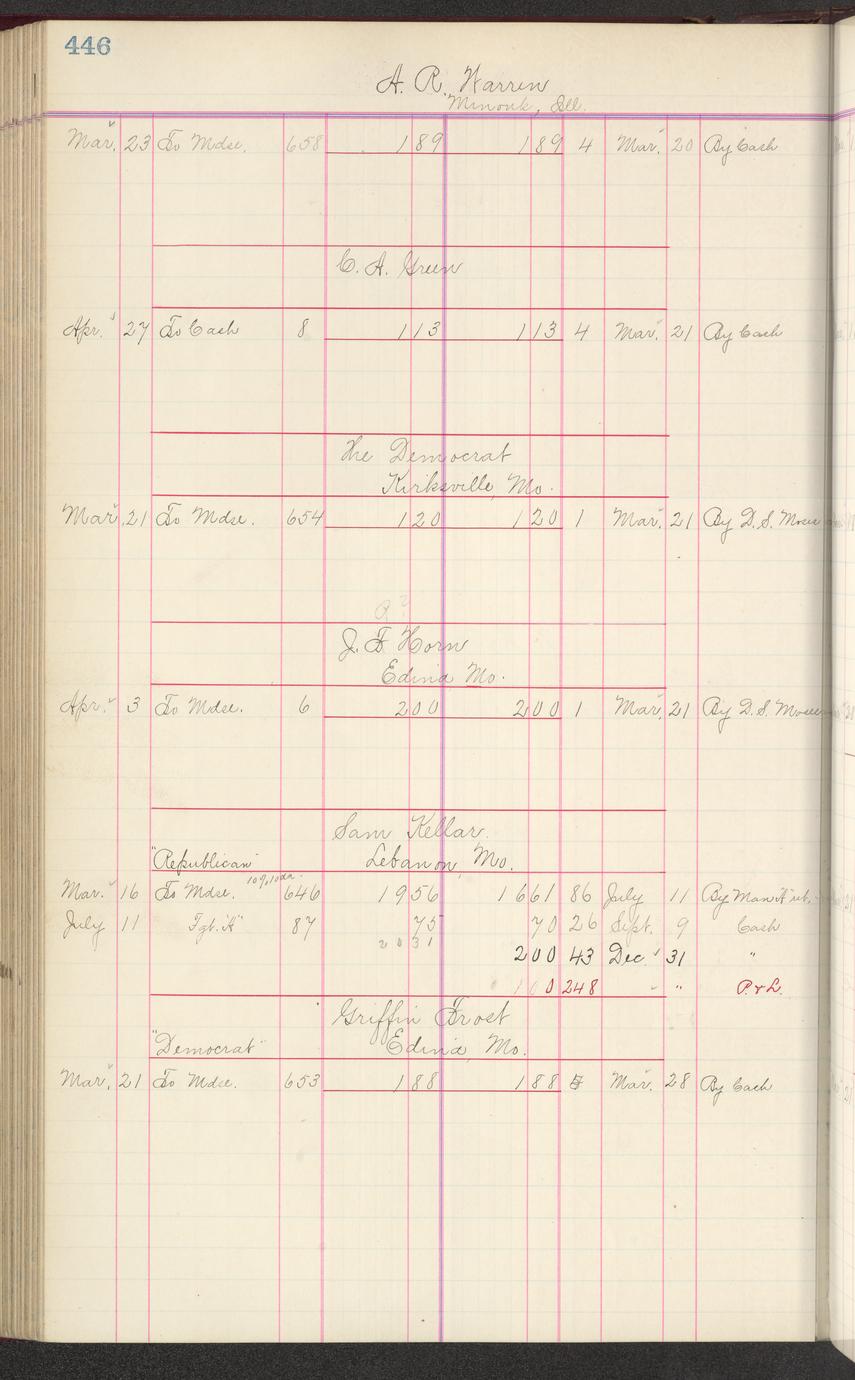 446
A. R. Warren
Minonk, Ill.
Mar. 23 To Mdse. 658 189 189 4 Mar. 20 By Cash
C. A. Green
Apr. 27 To Cash 8 113 113 4 Mar. 21 By Cash
The Democrat
Kirksville, Mo.
Mar. 21 To Mdse. 654 120 120 1 Mar. 21 By D. S. Moses
J. F. Horn
Edina Mo.
Apr. 3 To Mdse. 6 200 200 1 Mar. 21 By D. S. Moses
Sam Kellar.
"Republican" Lebanon, Mo.
Mar. 16 To Mdse. 646 1956 1661 86 July 11 By Man
July 11 Fgt. "A" 87 75 70 26 Sept. 9 Cash
2031
200 43 Dec. 31 "
100 248 " " P. & L.
Griffin Frost
"Democrat" Edina, Mo.
Mar. 21 To Mdse. 653 188 188 5 Mar. 28 By Cash